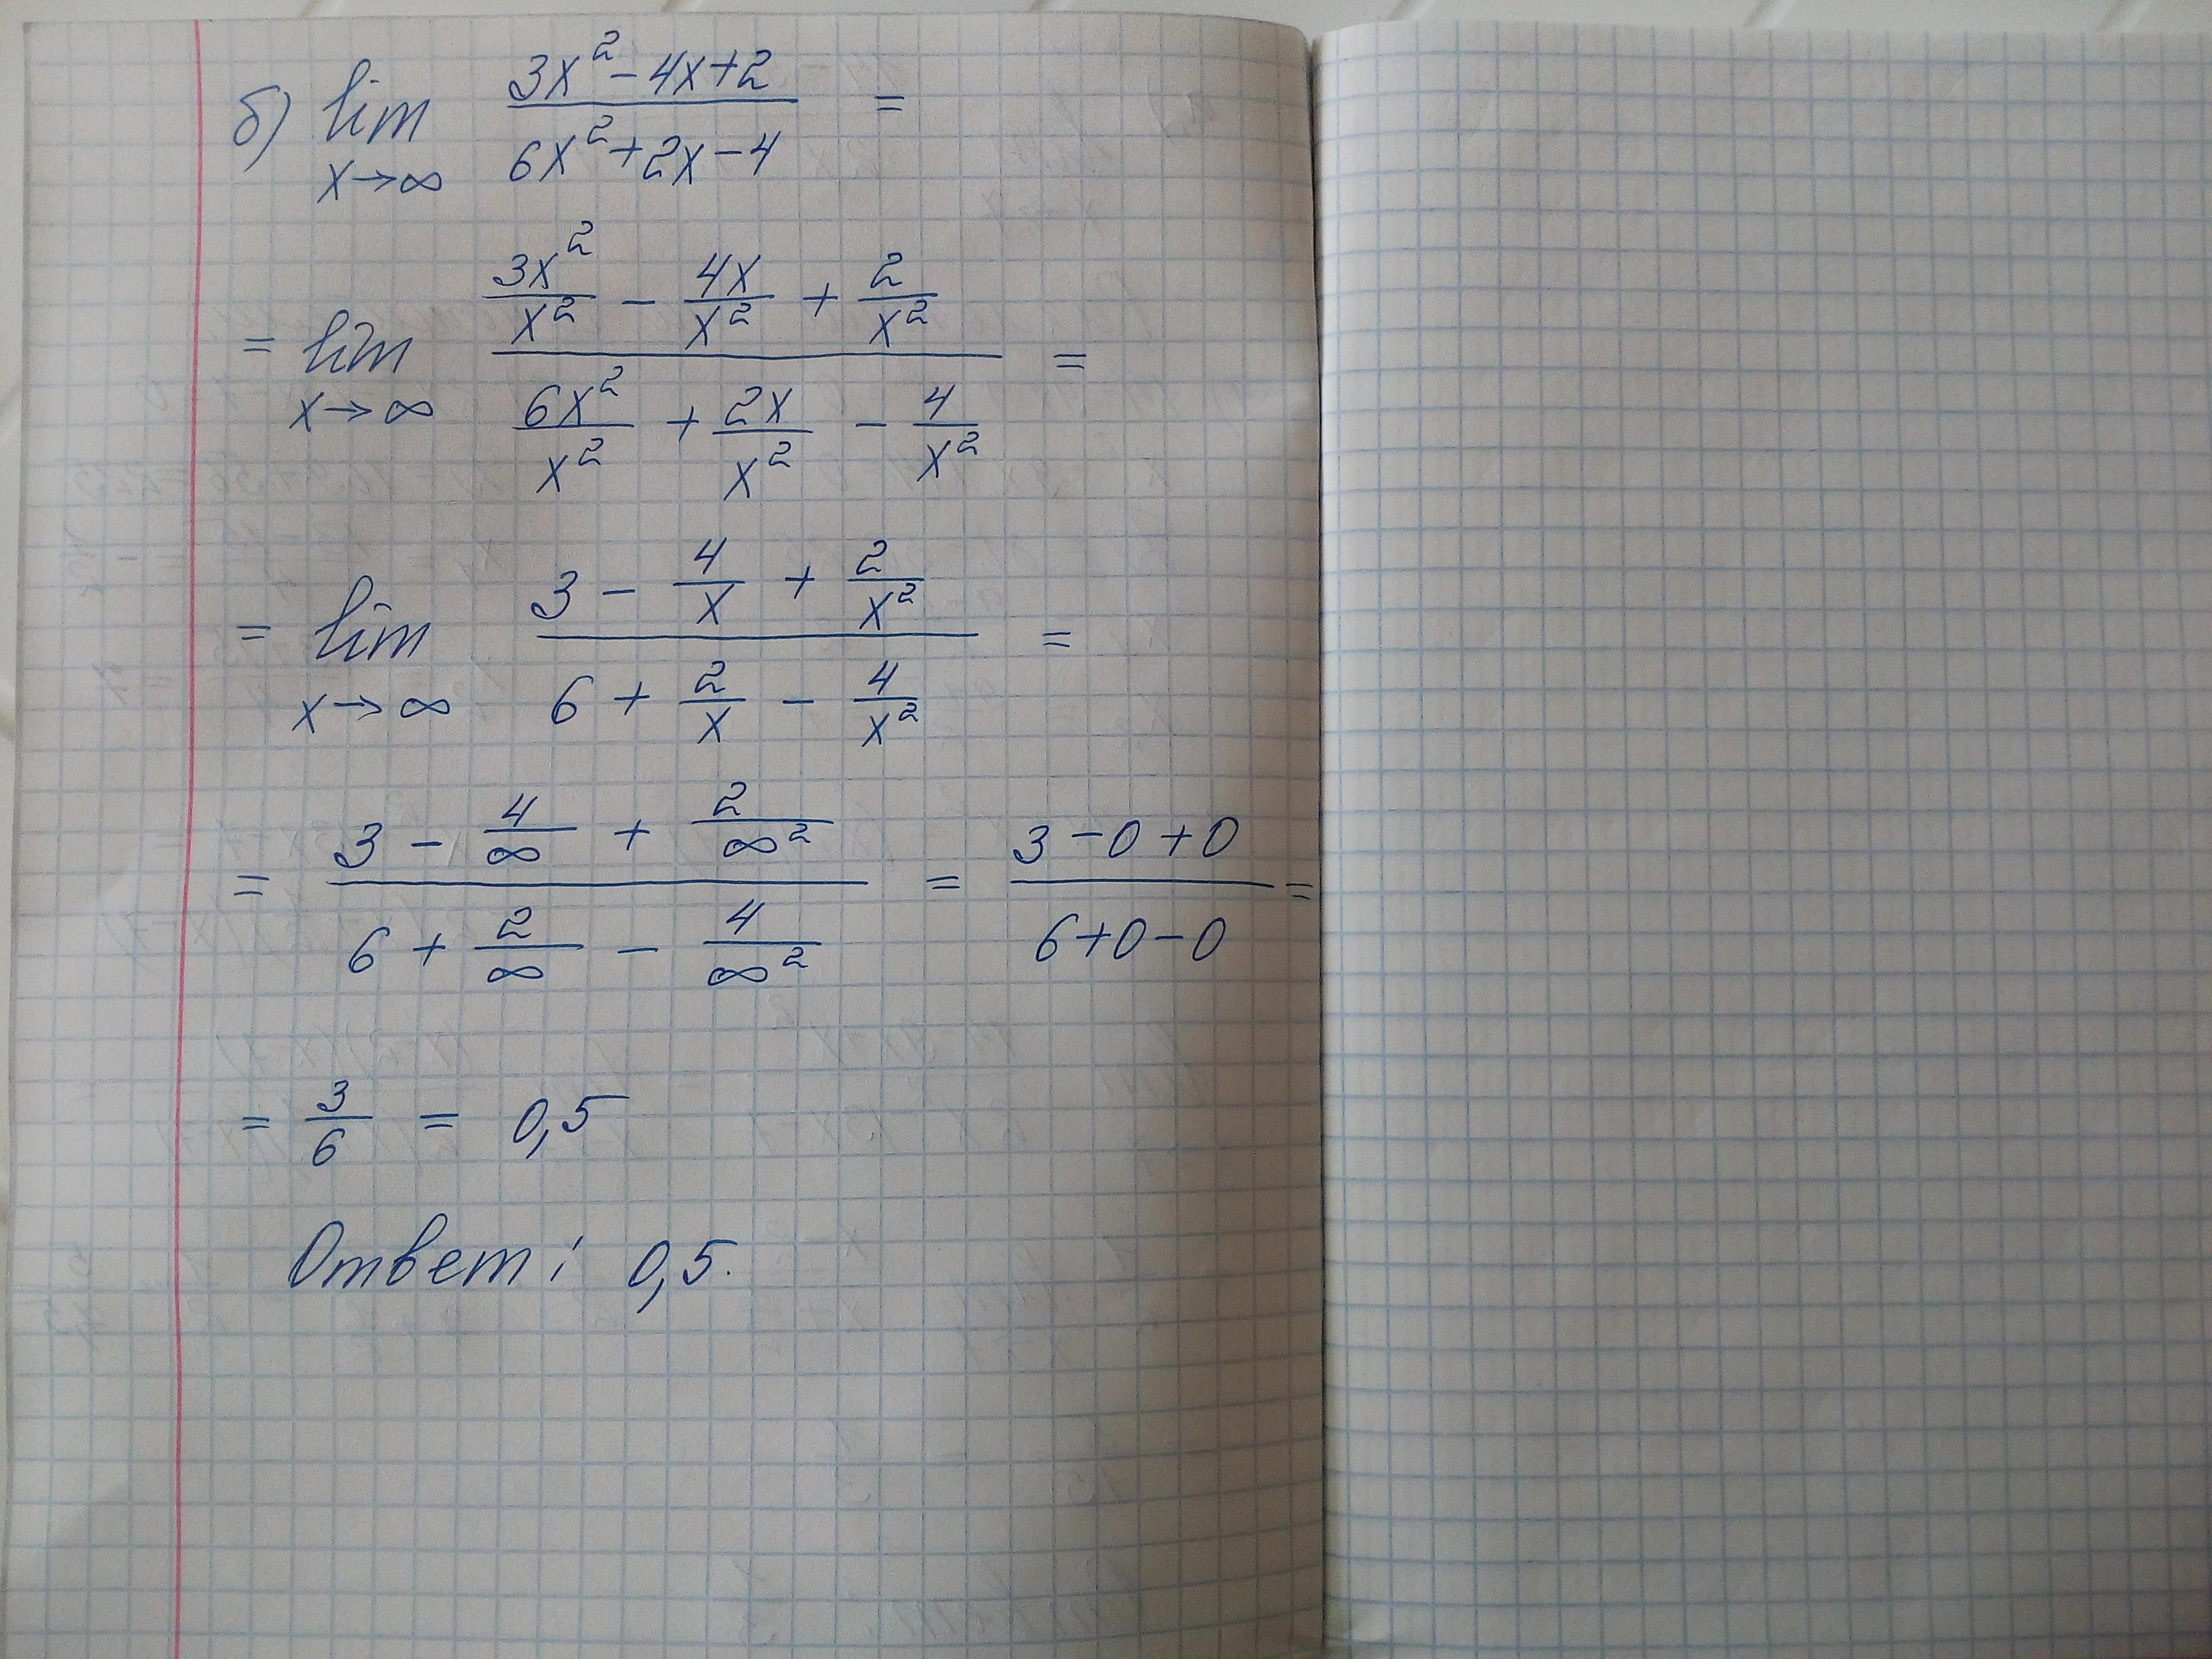 б) lim x→∞ (3x² - 4x + 2)/(6x² + 2x - 4) =
= lim x→∞ (3x²/x² - 4x/x² + 2/x²)/(6x²/x² + 2x/x² - 4/x²) =
= lim x→∞ (3 - 4/x + 2/x²)/(6 + 2/x - 4/x²) =
= (3 - 4/∞ + 2/∞²)/(6 + 2/∞ - 4/∞²) = (3 - 0 + 0)/(6 + 0 - 0) =
= 3/6 = 0,5
Ответ: 0,5.